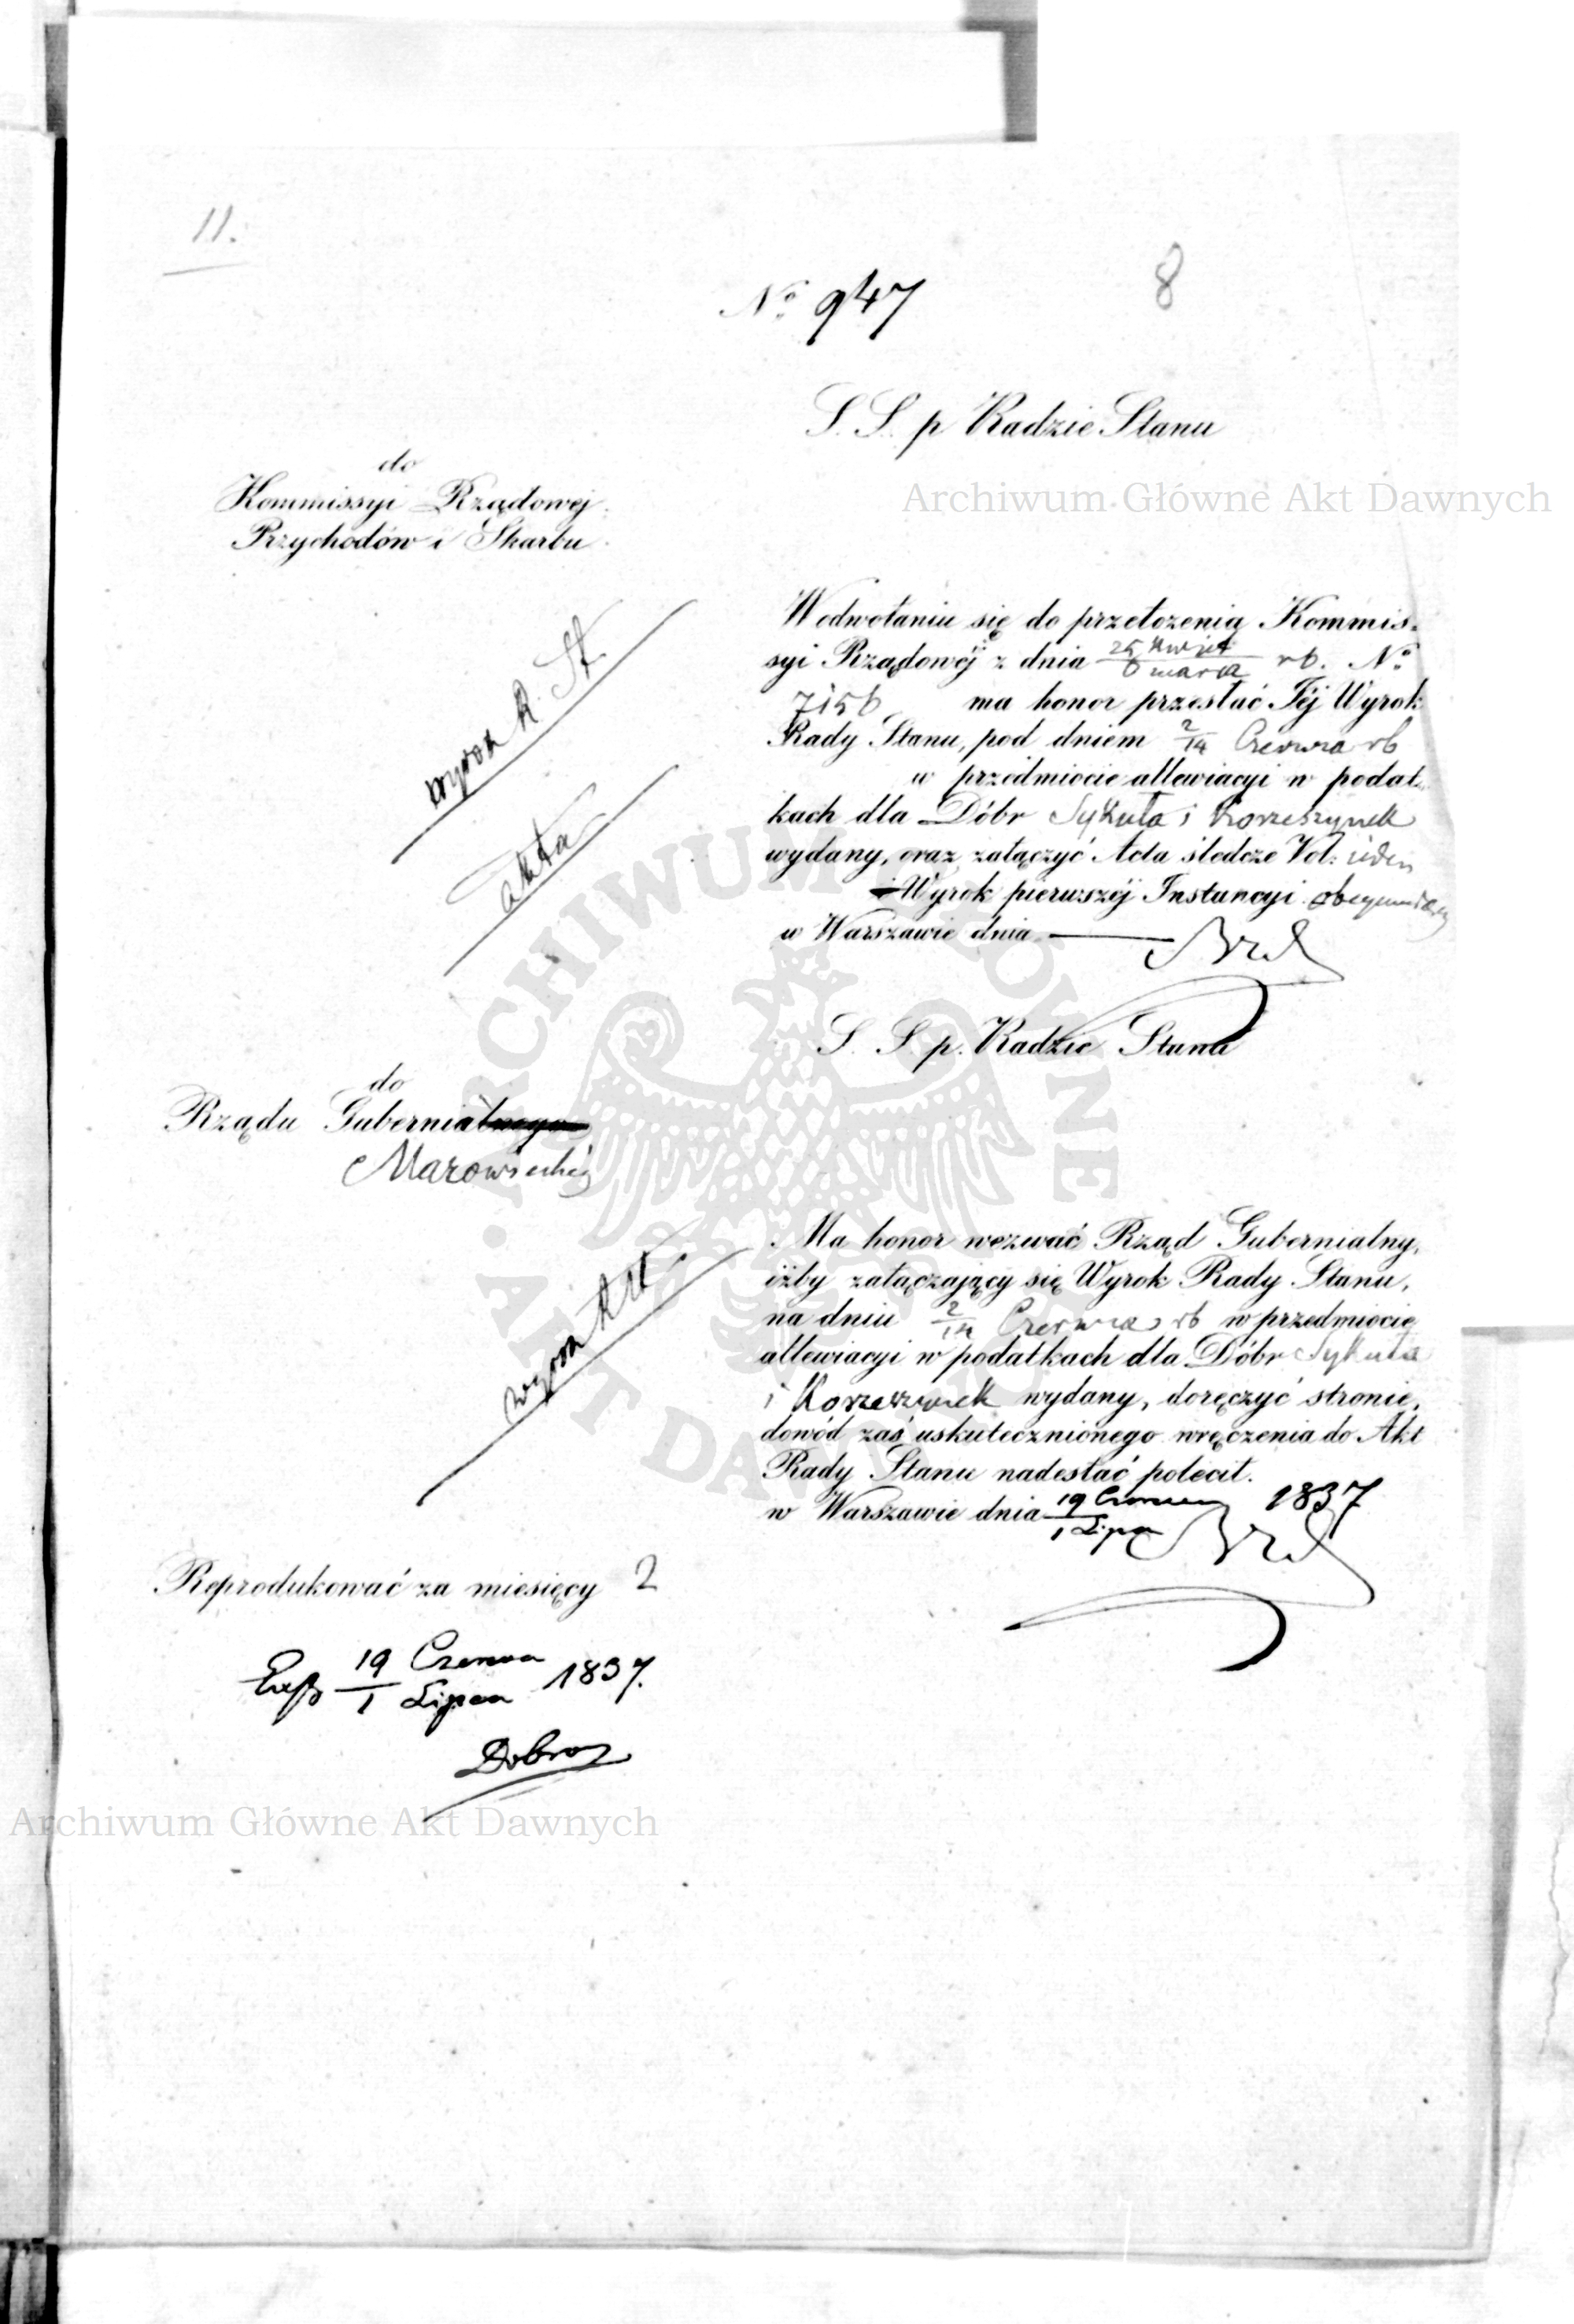 11.
8
No 947
S. S. p Radzie Stanu
do
Kommissyi Rządowej
Przychodów i Skarbu
Archiwum Główne Akt Dawnych
W odwołaniu się do przełożenia Kommis-
syi Rządowéj z dnia 25 Kwiet rb. No
ma honor przesłać Téj Wyrok
Rady Stanu, pod dniem 2/14 Czerwca rb
w przedmiocie allewiacyi w podat-
kach dla Dóbr Sykuła i Korzeszynek
wydany, oraz załączyć Acta śledcze Vol: jeden
i Wyrok pierwszéj Instancyi obeymujący
w Warszawie dnia
wyrok R. St.
akta
S. S. p. Radzie Stanu
do
Rządu Gubernialnego
Mazowieckiego
Ma honor wezwać Rząd Gubernialny,
iżby załączający się Wyrok Rady Stanu,
na dniu 2/14 Czerwca rb w przedmiocie
allewiacyi w podatkach dla Dóbr Sykuła
i Korzeszynek wydany, doręczyć stronie,
dowód zaś uskutecznionego wręczenia do Akt
Rady Stanu nadesłać polecił.
w Warszawie dnia 19 Czerwca/1 Lipca 1837
wyrok R. St.
Reprodukować za miesięcy 2
Exp 19 Czerwca/1 Lipca 1837.
ARCHIWUM GŁÓWNE AKT DAWNYCH
Archiwum Główne Akt Dawnych